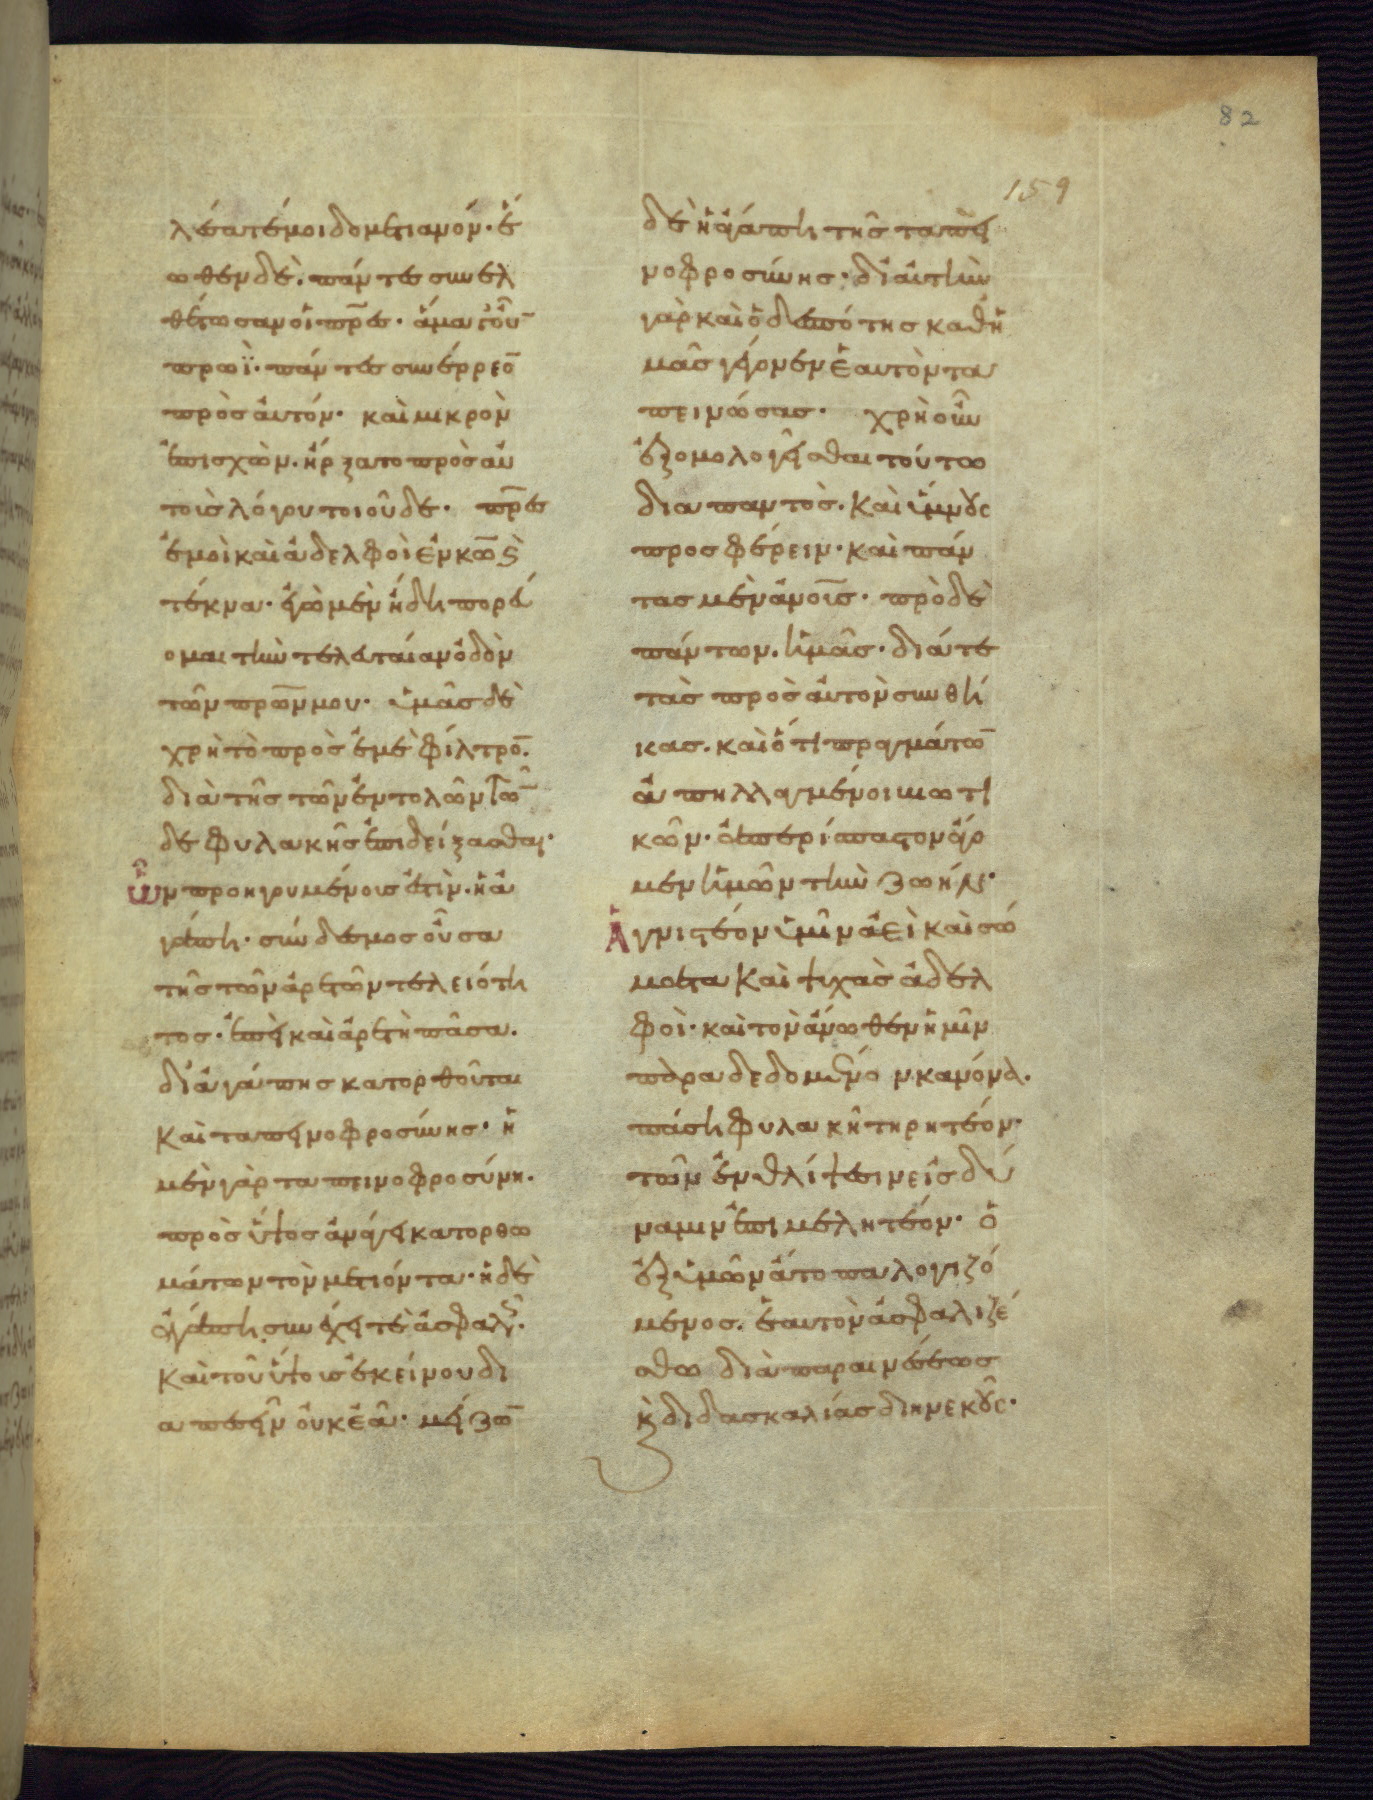 82
159
λέσατέ μοι δομετιανόν· ἕ
ωθεν δὲ. πάντες συνελ
θέτωσαν οἱ πρ̅ες· ἅμα γοῦν
πρωῒ· πάντες συνέρρεο̅
πρὸς αὐτόν· καὶ μικρὸν
ἐπισχὼν. ἤρξατο πρὸς αὐ
τοὺς λόγου τοιοῦδε· πρ̅ες
ἐμοὶ καὶ ἀδελφοὶ ἐν κω̅ ϛ
τέκνα· ἐγὼ μὲν ἤδη πορεύ
ομαι τὴν τελευταίαν ὁδὸν
τῶν πρω̅ν μου· ὑμᾶς δὲ
χρὴ τὸ πρὸς ἐμὲ φίλτρο̅.
διὰ τῆς τῶν ἐντολῶν τῶ̅
δε φυλακῆς ἐπιδείξασθαι·
ὧν προηγουμένοις ἐστὶν. ἡ ἀ
γάπη· σύνδεσμος οὖσα
τῆς τῶν ἀρετῶν τελειότη
τος· ἐπεὶ καὶ ἀρετὴ πᾶσα.
δι ἀγάπης κατορθοῦται
καὶ ταπεινοφροσύνης· ἡ
μὲν γὰρ ταπεινοφροσύνη.
πρὸς ὕψος ἀνάγει κατορθω
μάτων τὸν μετιόντα· ἡ δὲ
ἀγάπη συνέχει τὲ ἀσφαλῶς·
καὶ τοῦ ὕψους ἐκείνου δι
απεσεῖν οὐκ ἐᾶ· μείζω̅
δὲ ἡ ἀγάπη τῆς ταπει
νοφροσύνης· δι αὐτὴν
γὰρ καὶ ὁ δεσπότης καθ ἡ
μᾶς γέγονεν ἑαυτὸν τα
πεινώσας· χρὴ οὖν
ἐξομολογεῖσθαι τούτω
διαπαντὸς. καὶ ὕμνους
προσφέρειν· καὶ πάν
τας μὲν ἀνο̅ις· πρὸ δὲ
πάντων. ἡμᾶς· διά τε
τὰς πρὸς αὐτὸν συνθή
κας. καὶ ὅτι πραγμάτω̅
ἀπηλλαγμένοι βιωτι
κῶν· ἀπερίσπαστον ἄγο
μεν ἡμῶν τὴν ζωήν·
Ἁγνιστέον ὑμῖν ἀεὶ καὶ σώ
ματα καὶ ψυχὰς ἀδελ
φοὶ· καὶ τὸν ἄνωθεν ἡμῖν
παραδεδομένον κανόνα.
πάση φυλακῆ τηρητέον·
τῶν ἐν θλίψεσιν εἰς δύ
ναμιν ἐπιμελητέον· ὁ
ἐξ ὑμῶν ἄτοπα λογιζό
μενος. ἑαυτὸν ἀσφαλιζέ
σθω διὰ παραινέσεως
κ̀ διδασκαλίας διηνεκοῦς·